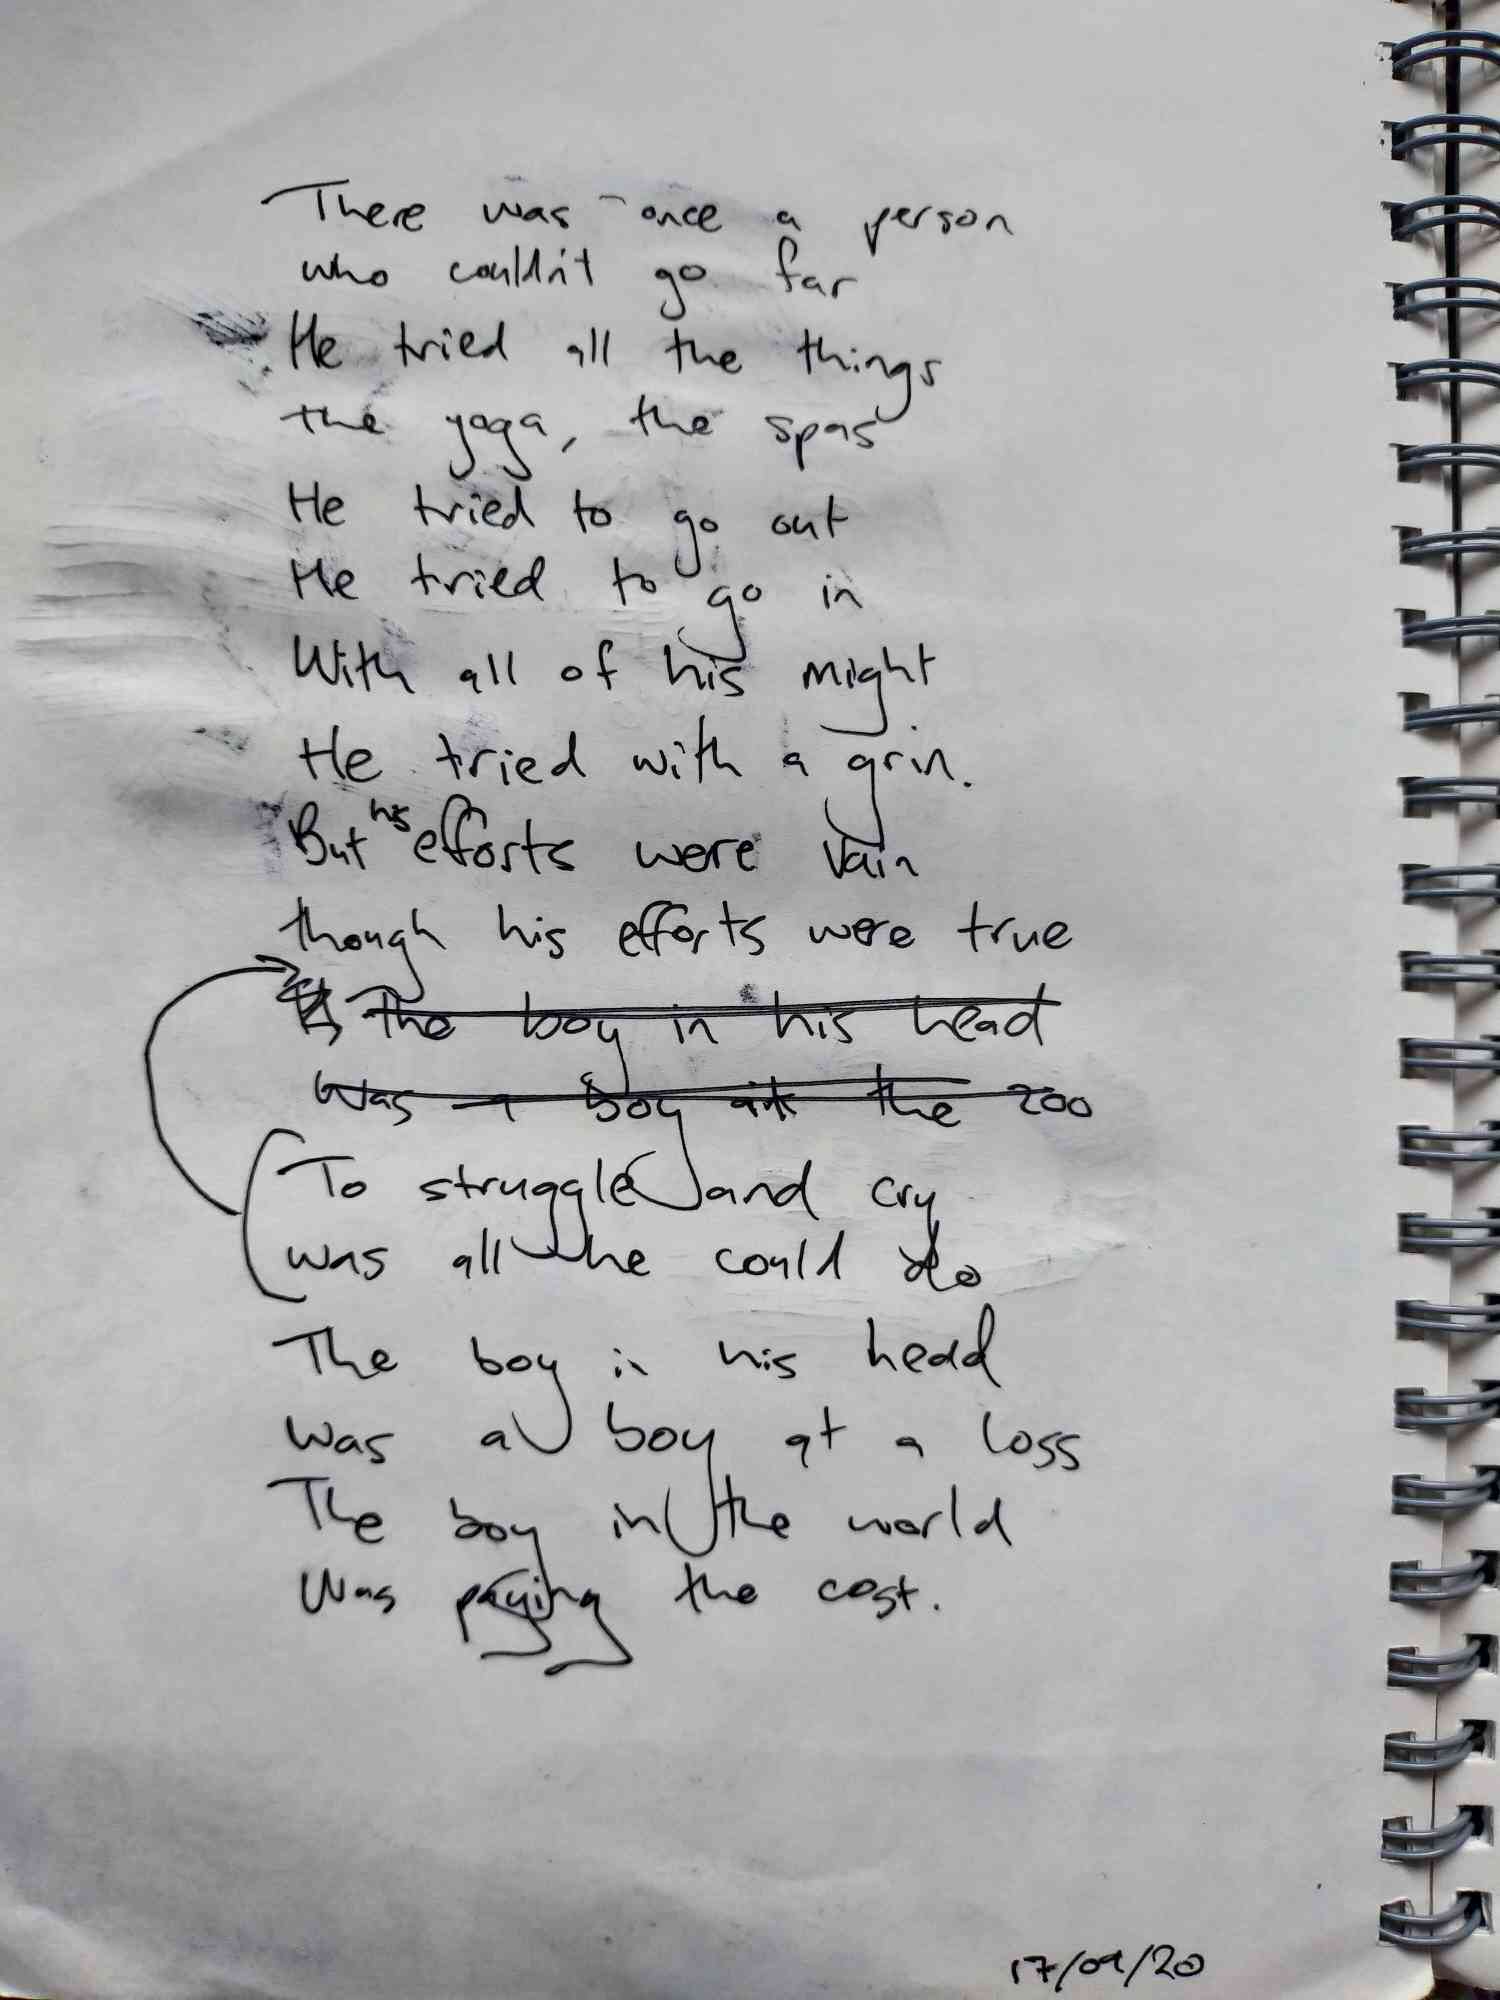 There was once a person
who couldn't go far
He tried all the things
the yoga, the spas
He tried to go out
He tried to go in
With all of his might
He tried with a grin.
But his efforts were vain
though his efforts were true
The boy in his head
was a boy at the zoo
To struggle and cry
was all he could do
The boy in his head
was a boy at a loss
The boy in the world
was paying the cost.
17/09/20